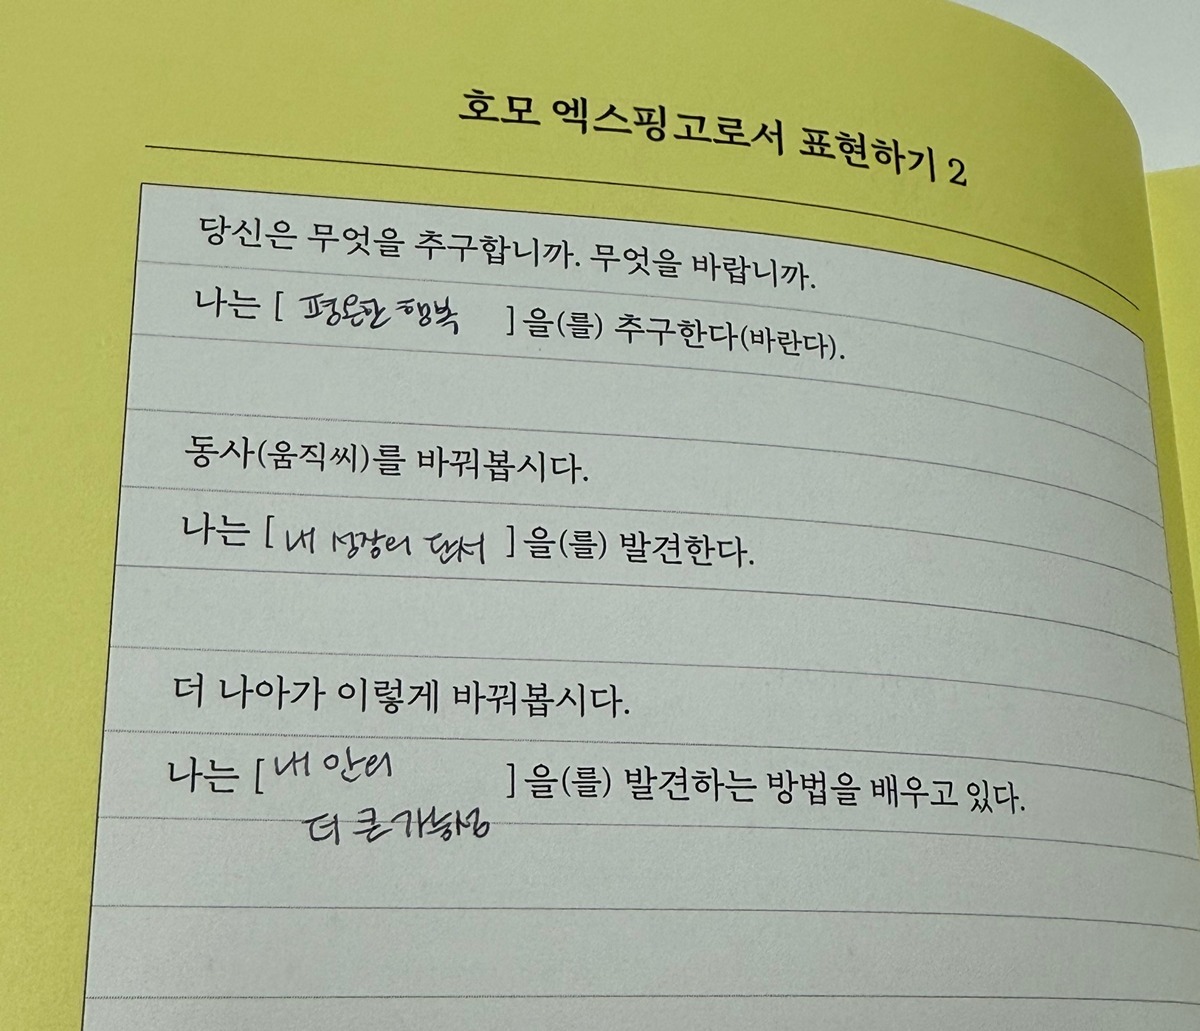 호모 엑스핑고로서 표현하기 2
당신은 무엇을 추구합니까. 무엇을 바랍니까.
나는 [ 평온한 행복 ]을(를) 추구한다(바란다).
동사(움직씨)를 바꿔봅시다.
나는 [ 내 성장의 단서 ]을(를) 발견한다.
더 나아가 이렇게 바꿔봅시다.
나는 [ 내 안의 ]을(를) 발견하는 방법을 배우고 있다.
더 큰 가능성